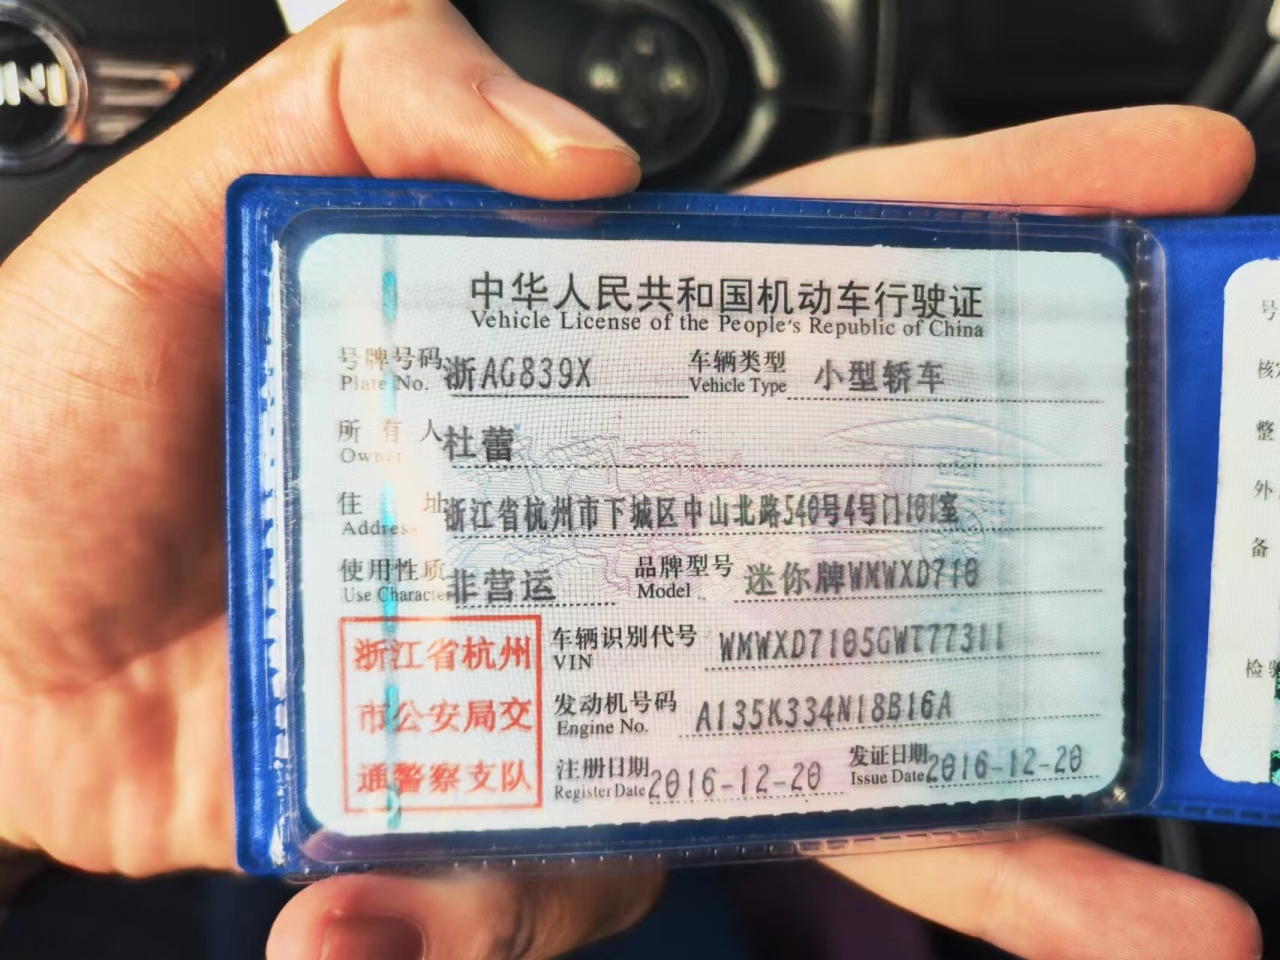 中华人民共和国机动车行驶证
Vehicle License of the People's Republic of China
号牌号码 浙AG839X 车辆类型 小型轿车
Plate No. Vehicle Type
所有人 杜蕾
Owner
住址 浙江省杭州市下城区中山北路540号4号门101室
Address
使用性质 非营运 品牌型号 迷你牌WMWXD710
Use Character Model
车辆识别代号 WMWXD7105GWT77311
VIN
发动机号码 A135K334N18B16A
Engine No.
注册日期 2016-12-20 发证日期 2016-12-20
Register Date Issue Date
浙江省杭州
市公安局交
通警察支队
号
核
整
外
备
检